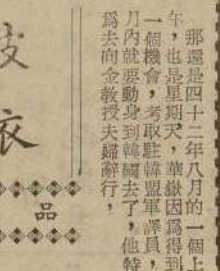 那還是四十二年八月的一個上
午，也是星期天，華嶽因爲得到
一個機會，考取駐韓盟軍譯員，
月內就要動身到韓國去了，他特
爲去向金敎授夫婦辭行，
皮
衣
品